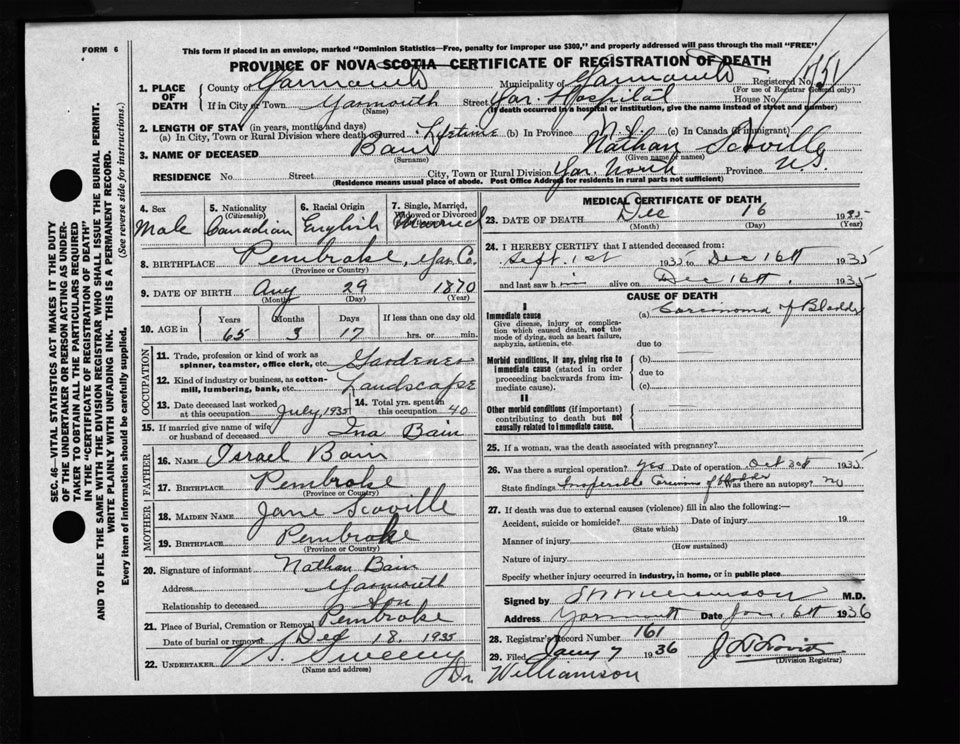 FORM 6
This form if placed in an envelope, marked "Dominion Statistics—Free, penalty for improper use $300," and properly addressed will pass through the mail "FREE"
PROVINCE OF NOVA SCOTIA—CERTIFICATE OF REGISTRATION OF DEATH
1. PLACE OF DEATH County of Yarmouth Municipality of Yarmouth Registered No. 751
(For use of Registrar General only)
If in City or Town Yarmouth Street Yar. Hospital House No.
(Name) (If death occurred in a hospital or institution, give the name instead of street and number)
2. LENGTH OF STAY (in years, months and days)
(a) In City, Town or Rural Division where death occurred Lifetime (b) In Province (c) In Canada (if immigrant)
3. NAME OF DECEASED Bain Nathan Scoville
(Surname) (Given name or names)
RESIDENCE No. Street City, Town or Rural Division Yar. North Province N.S.
(Residence means usual place of abode. Post Office Address for residents in rural parts not sufficient)
4. Sex Male
5. Nationality (Citizenship) Canadian
6. Racial Origin English
7. Single, Married, Widowed or Divorced Married
8. BIRTHPLACE Pembroke, Yar. Co.
(Province or Country)
9. DATE OF BIRTH Aug 29 1870
(Month) (Day) (Year)
10. AGE in Years 65 Months 3 Days 17 If less than one day old hrs. or min.
OCCUPATION
11. Trade, profession or kind of work as spinner, teamster, office clerk, etc. Gardener
12. Kind of industry or business, as cotton-mill, lumbering, bank, etc. Landscape
13. Date deceased last worked at this occupation July, 1935
14. Total yrs. spent in this occupation 40
15. If married give name of wife or husband of deceased Ina Bain
FATHER
16. NAME Israel Bain
17. BIRTHPLACE Pembroke
(Province or Country)
MOTHER
18. MAIDEN NAME Jane Scoville
19. BIRTHPLACE Pembroke
(Province or Country)
20. Signature of informant Nathan Bain
Address Yarmouth
Relationship to deceased Son
21. Place of Burial, Cremation or Removal Pembroke
Date of burial or removal Dec 18, 1935
22. UNDERTAKER Sweeny
(Name and address)
MEDICAL CERTIFICATE OF DEATH
23. DATE OF DEATH Dec 16 1935
(Month) (Day) (Year)
24. I HEREBY CERTIFY that I attended deceased from:
Sept. 1st 1935 to Dec 16th 1935
and last saw him alive on Dec 16th, 1935
CAUSE OF DEATH
I
Immediate cause
Give disease, injury or complication which caused death, not the mode of dying, such as heart failure, asphyxia, asthenia, etc.
(a) Carcinoma of Bladder
due to
Morbid conditions, if any, giving rise to immediate cause (stated in order proceeding backwards from immediate cause).
(b)
due to
(c)
II
Other morbid conditions (if important) contributing to death but not causally related to immediate cause.
25. If a woman, was the death associated with pregnancy?
26. Was there a surgical operation? Yes Date of operation Oct 1935
State findings Inoperable Carcinoma of bladder Was there an autopsy? no
27. If death was due to external causes (violence) fill in also the following:—
Accident, suicide or homicide? Date of injury 19
(State which)
Manner of injury
(How sustained)
Nature of injury
Specify whether injury occurred in industry, in home, or in public place
Signed by Williamson M.D.
Address Yarmouth Date Jan. 6th 1936
28. Registrar's Record Number 161
29. Filed Jany 7 1936
(Division Registrar)
Dr Williamson
SEC. 46—VITAL STATISTICS ACT MAKES IT THE DUTY
OF THE UNDERTAKER OR PERSON ACTING AS UNDER-
TAKER TO OBTAIN ALL THE PARTICULARS REQUIRED
IN THE "CERTIFICATE OF REGISTRATION OF DEATH"
AND TO FILE THE SAME WITH THE DIVISION REGISTRAR WHO SHALL ISSUE THE BURIAL PERMIT.
WRITE PLAINLY WITH UNFADING INK. THIS IS A PERMANENT RECORD.
Every item of information should be carefully supplied. (See reverse side for instructions.)